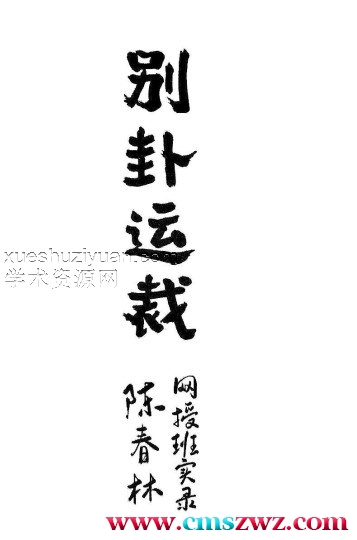 别卦运裁
xueshuziyuan.com
学术资源网
网授班实录
陈春林
www.cmszwz.com